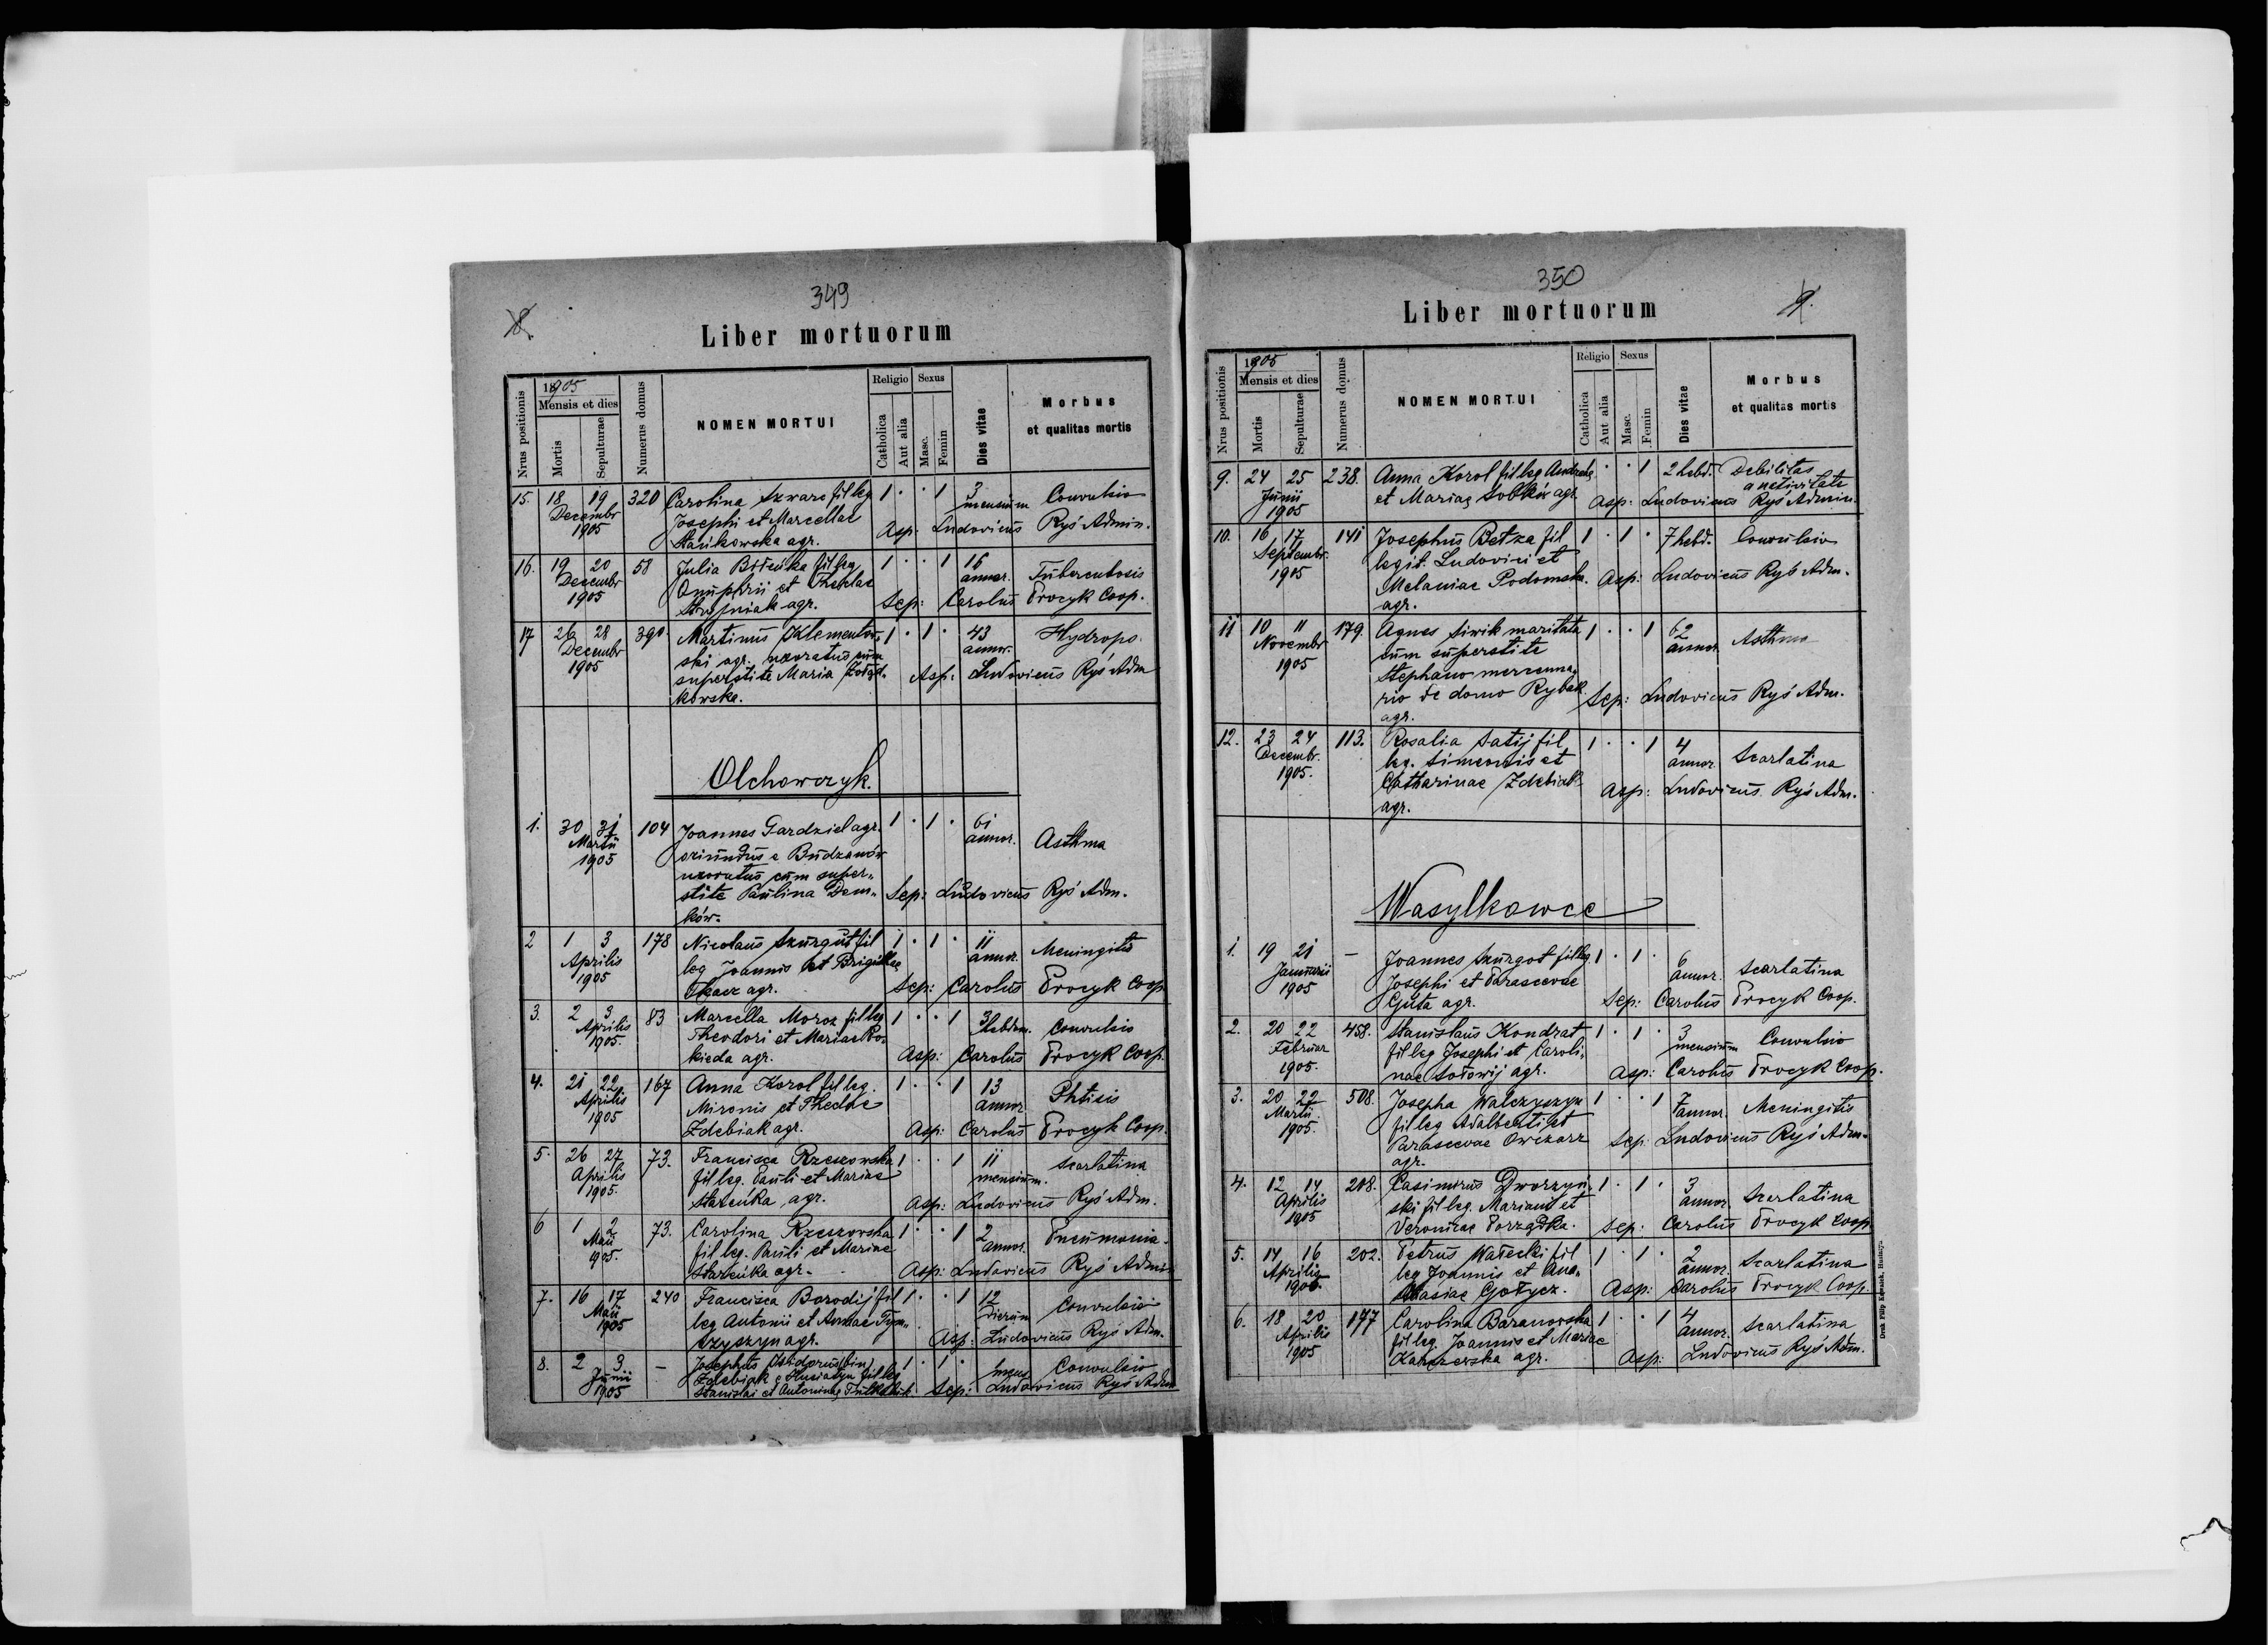 349
8.
Liber mortuorum
Nrus positionis
1905
Mensis et dies
Mortis
Sepulturae
Numerus domus
NOMEN MORTUI
Religio
Catholica
Aut alia
Sexus
Masc.
Femin
Dies vitae
Morbus
et qualitas mortis
15. 18 19 320 Carolina Szwarc fil leg 1 · · 1 3 Convulsio
Decembr mensium
1905 Josephi et Marcellae
Stańkowska agr. Asp: Ludovicus Ryś Admin.
16. 19 20 58 Julia fil leg 1 · · 1 16
Decembr Onuphrii et Theclae annor. Tuberculosis
1905 agr. Sep: Carolus Procyk Coop.
17 26 28 390 Martinus Klementow„ 1 · 1 · 43 Hydrops
Decembr ski agr. uxoratus cum annor.
1905 superstite Maria Żołąd„ Asp: Ludovicus Ryś Adm
kowska.
Olchowczyk.
1. 30 31 104 Joannes Gardziel agr. 1 · 1 · 61
Martii oriundus e Budzanów annor. Asthma
1905 uxoratus cum super„
stite Paulina Dem„ Sep: Ludovicus Ryś Adm.
ków.
2 1 3 178 Nicolaus Skurgut fil 1 · 1 · 11 Meningitis
Aprilis leg Joannis et Brigittae annor.
1905 Tkacz agr. Sep: Carolus Procyk Coop
3. 2 3 83 Marcella Moroz fil leg 1 · · 1 3 Convulsio
Aprilis Theodori et Mariae Po„ hebdm.
1905. kieda agr. Asp: Carolus Procyk Coop.
4. 21 22 167 Anna Korol fil leg. 1 · · 1 13 Phtisis
Aprilis Mironis et Theclae annor
1905 Zdebiak agr. Asp: Carolus Procyk Coop.
5. 26 27 73. Francisca Rzeszowska 1 · · 1 11 Scarlatina
Aprilis fil leg. Pauli et Mariae mensium.
1905. agr. Asp: Ludovicus Ryś Adm.
6 1 2 73. Carolina Rzeszowska 1 · · 1 2 Pneumonia
Maii fil leg. Pauli et Mariae annor.
1905. agr. Asp: Ludovicus Ryś Admin
7. 16 17 240 Francisca Borodij fil 1 · · 1 12 Convulsio
Maii leg Antonii et Annae Tym„ dierum
1905 czyszyn agr. Asp: Ludovicus Ryś Adm.
8. 2 3 — Josephus Isidorus (bin) 1 · 1 · Convulsio
Junii Zdebiak e Husiatyn fil leg mens
1905 Stanislai et Antoninae Sep: Ludovicus Ryś Adm
350
9.
Liber mortuorum
Nrus positionis
1905
Mensis et dies
Mortis
Sepulturae
Numerus domus
NOMEN MORTUI
Religio
Catholica
Aut alia
Sexus
Masc.
Femin
Dies vitae
Morbus
et qualitas mortis
9. 24 25 238. Anna Korol fil leg Andreae · · 1 2 hebd. Debilitas
Junii et Mariae Sobków agr. a nativitate
1905 Asp: Ludovicus Ryś Admin.
10. 16 17 141 Josephus Betza fil 1 · 1 · 7 hebd. Convulsio
Septembr. legit. Ludovici et
1905 Melaniae Podomska. Asp: Ludovicus Ryś Adm.
agr.
11 10 11 179. Agnes Siwik maritata 1 · · 1 62 Asthma
Novembr cum superstite annor
1905 Stephano mercenna„
rio de domo Rybak. Sep: Ludovicus Ryś Adm.
agr.
12. 23 24 113. Rosalia Satij fil 1 · · 1 4
Decembr. leg. Simeonis et annor. Scarlatina
1905. Catharinae Zdebiak Asp: Ludovicus Ryś Adm.
agr.
Wasylkowce
1. 19 21 — Joannes Skurgot fil leg 1 · 1 · 6
Januarii Josephi et Parascevae annor. Scarlatina
1905 Guta agr. Sep: Carolus Procyk Coop.
2. 20 22 458. Stanislaus Kondrat 1 · 1 · 3 Convulsio
Februar fil leg Josephi et Caroli„ mensium
1905. nae Sołowij agr. Asp: Carolus Procyk Coop.
3. 20 22 508. Josepha Walczyszyn 1 · · 1 7 Meningitis
Martii fil leg Adalberti et annor.
1905. Parascevae Owczarz Sep: Ludovicus Ryś Adm.
agr.
4. 12 14 208. Casimirus Dworzyń„ 1 · 1 · 3 Scarlatina
Aprilis ski fil leg. Mariani et annor.
1905 Veronicae Porządka. Sep: Carolus Procyk Coop
5. 14 16 202. Petrus Wałecki fil 1 · 1 · 2 Scarlatina
Aprilis leg Joannis et Ana„ annor.
1905. stasiae Gołycz. Asp: Carolus Procyk Coop.
6. 18 20 177 Carolina Baranowska 1 · · 1 4 Scarlatina
Aprilis fil leg. Joannis et Mariae annor.
1905 agr. Asp: Ludovicus Ryś Adm.
Druk Filip Kawalek, Husiatyn